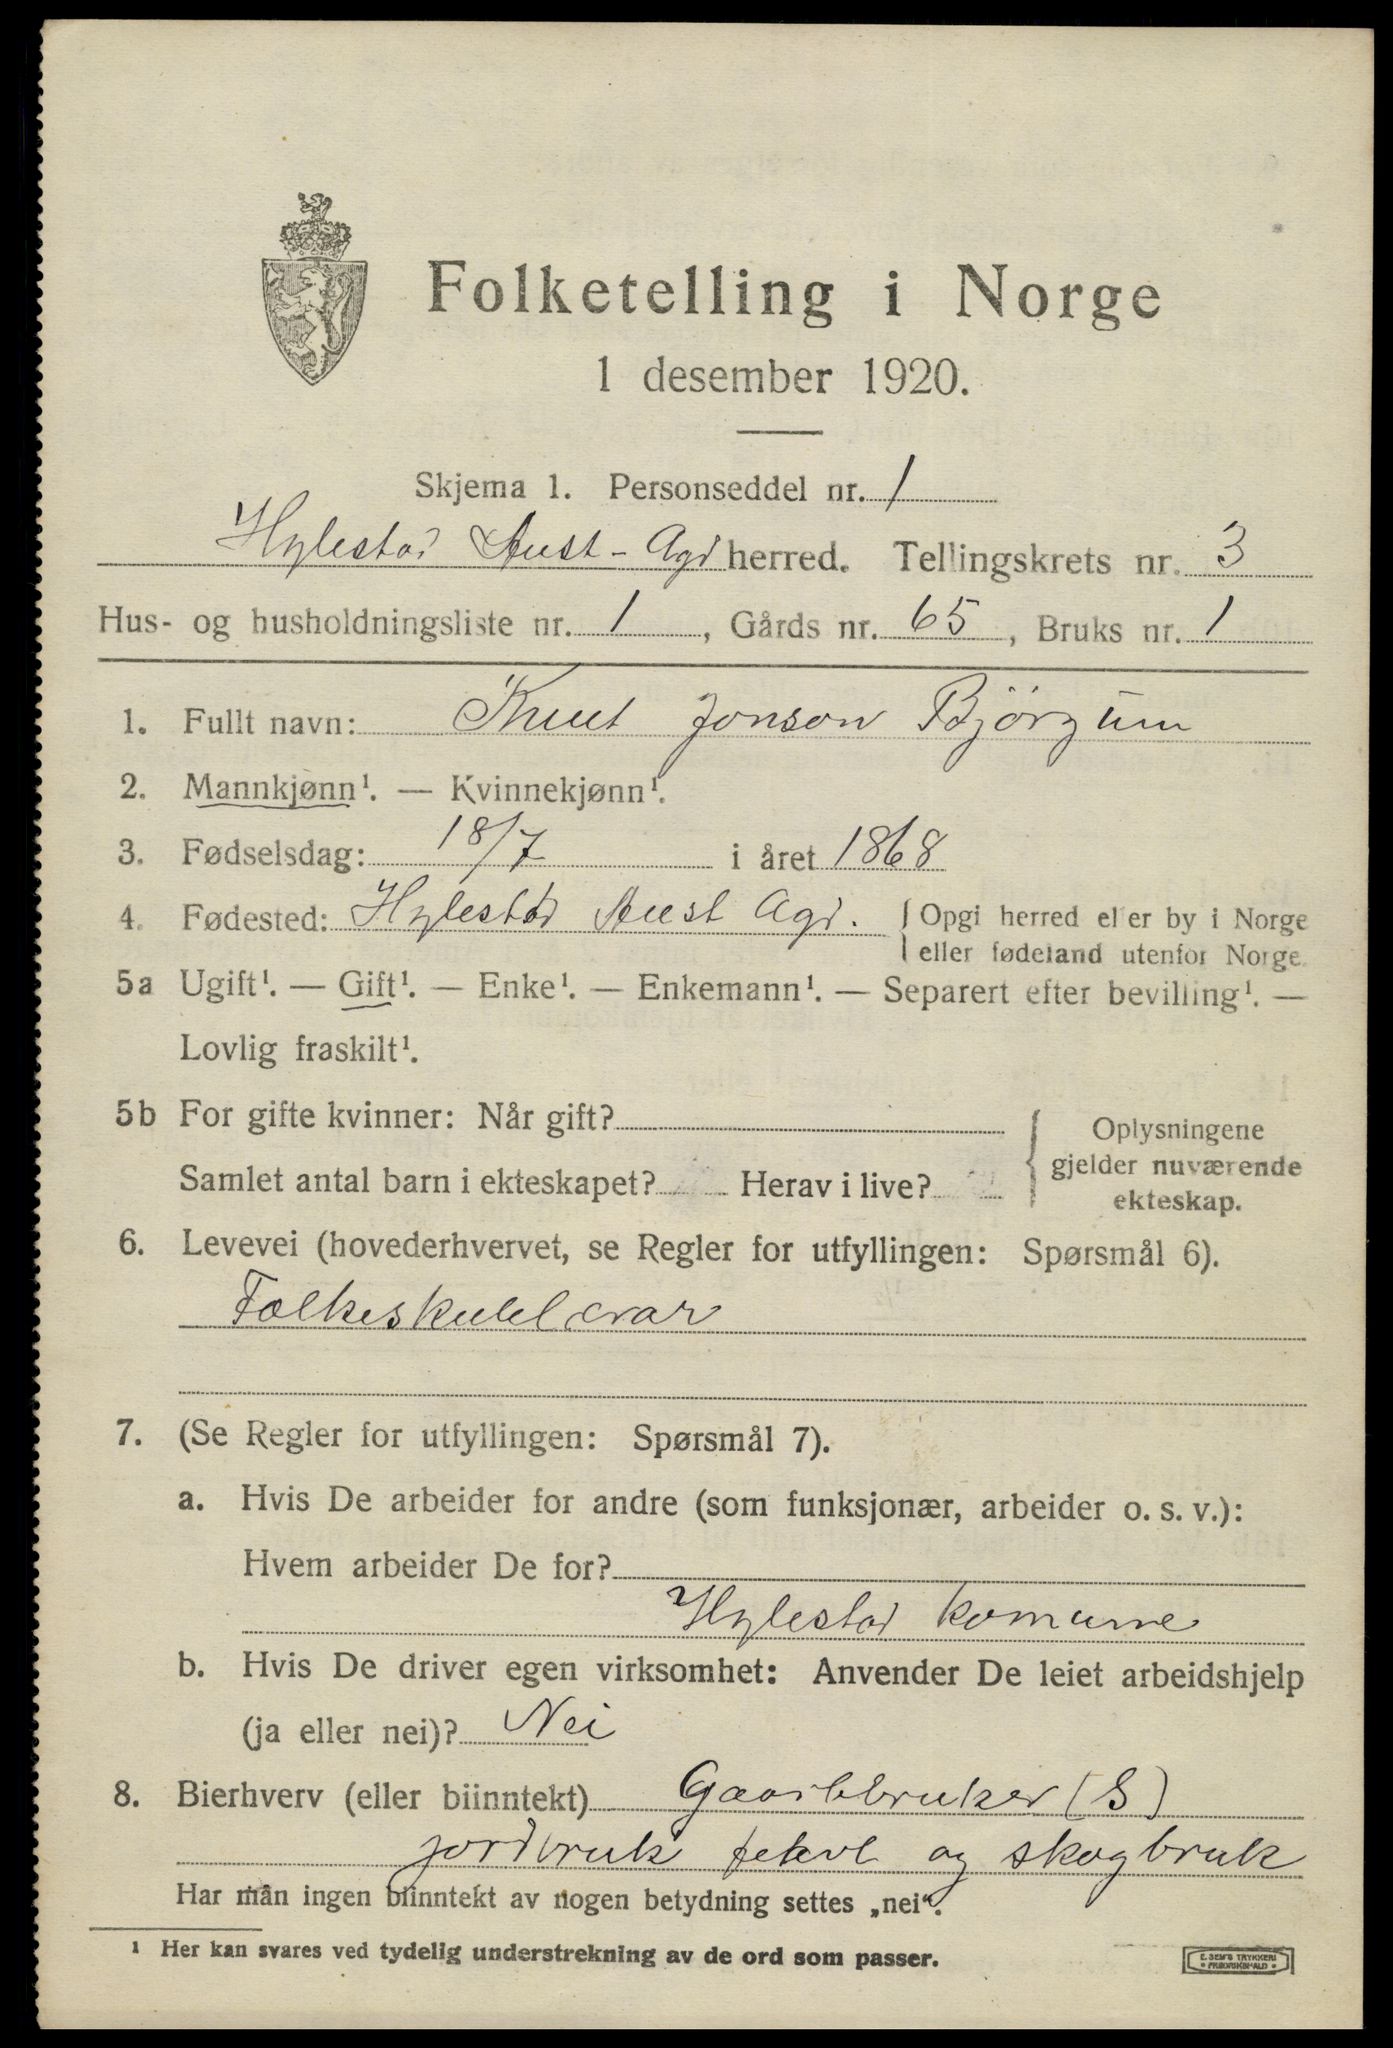 Folketelling i Norge
1 desember 1920.
Skjema 1. Personseddel nr. 1
Hylestad Aust-Agd herred. Tellingskrets nr. 3
Hus- og husholdningsliste nr. 1, Gårds nr. 65, Bruks nr. 1
1. Fullt navn: Knut Jonson Bjørgum
2. Mannkjønn¹. — Kvinnekjønn¹.
3. Fødselsdag: 18/7 i året 1868
4. Fødested: Hylestad Aust Agd. Opgi herred eller by i Norge
eller fødeland utenfor Norge.
5a Ugift¹. — Gift¹. — Enke¹. — Enkemann¹. — Separert efter bevilling¹. —
Lovlig fraskilt¹.
5b For gifte kvinner: Når gift?
Samlet antal barn i ekteskapet? Herav i live?
Oplysningene
gjelder nuværende
ekteskap.
6. Levevei (hovederhvervet, se Regler for utfyllingen: Spørsmål 6).
Folkeskulelærar
7. (Se Regler for utfyllingen: Spørsmål 7).
a. Hvis De arbeider for andre (som funksjonær, arbeider o. s. v.):
Hvem arbeider De for?
Hylestad komune
b. Hvis De driver egen virksomhet: Anvender De leiet arbeidshjelp
(ja eller nei)? Nei
8. Bierhverv (eller biinntekt) Gaardbruker (S)
jordbruk feavl og skogbruk
Har man ingen biinntekt av nogen betydning settes „nei“.
¹ Her kan svares ved tydelig understrekning av de ord som passer.
E. SEM'S TRYKKERI
FREDRIKSHALD